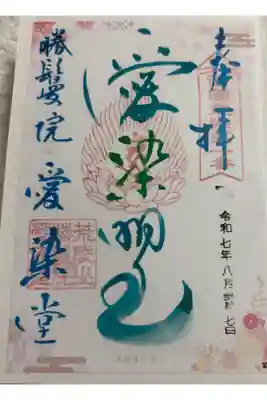 奉拝
令和七年八月 七日
愛染明王
勝鬘院愛染堂